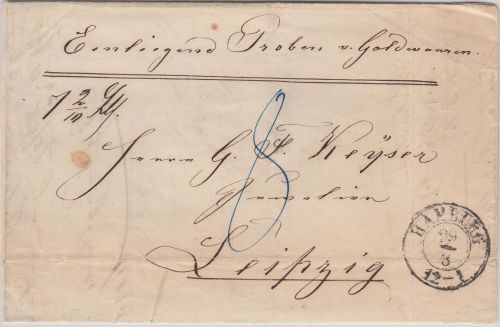 Einliegend Proben v. Goldwaaren.
1 2/10 Lth.
8
Herrn G. F. Keÿser
Juwelier
Leipzig
HAMBURG
29
8
12-1